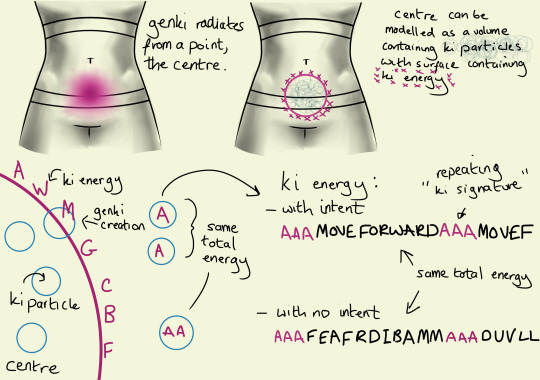 genki radiates
from a point,
the centre.
centre can be
modelled as a volume
containing ki particles
with surface containing
ki energy
A
W
ki energy
M
genki
creation
G
ki particle
C
B
F
centre
A
A
same
total
energy
AA
ki energy:
- with intent
repeating
"ki signature"
AAAMOVEFORWARDAAAMOVEF
same total energy
- with no intent
AAAFEAFRDIBAMMAAADUVLL